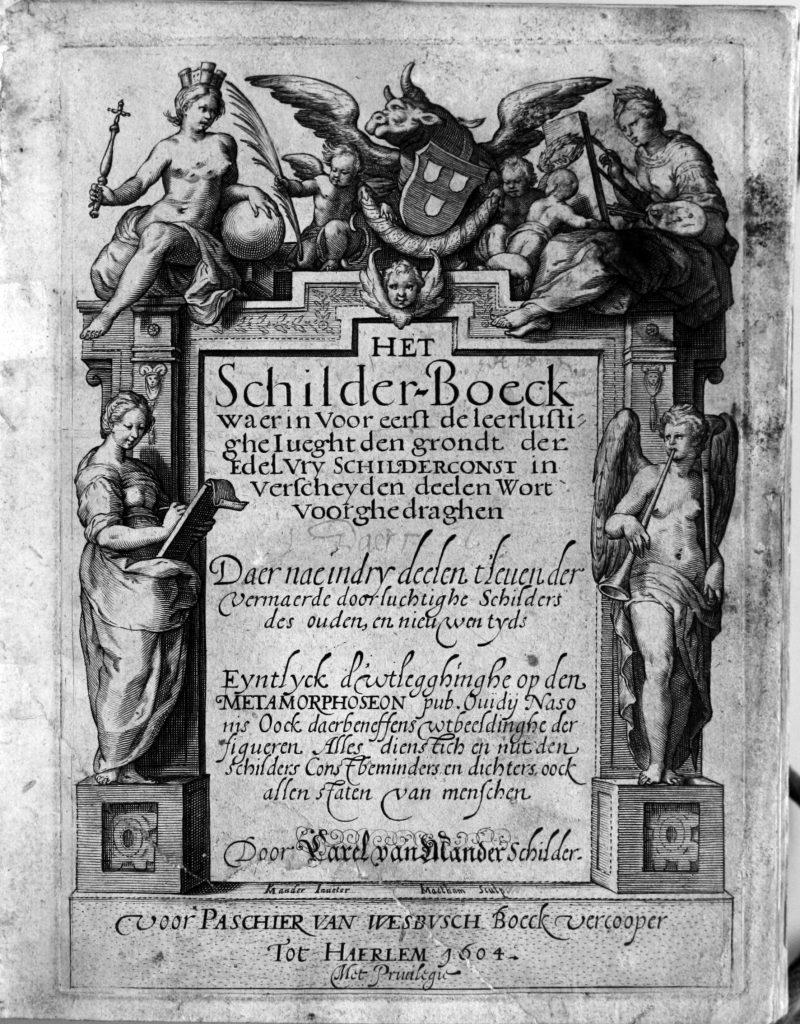 HET
Schilder-Boeck
waer in Voor eerst de leerlusti-
ghe Iueght den grondt der
Edel Vry SCHILDERCONST in
Verscheyden deelen Wort
Voorghedraghen
Daer nae in dry deelen t'leuen der
vermaerde doorluchtighe Schilders
des ouden, en nieuwen tyds
Eyntlyck d'wtlegghinghe op den
METAMORPHOSEON pub. Ouidij Naso
nis Oock daerbeneffens wtbeeldinghe der
figueren Alles dienstich en nut den
schilders Constbeminders en dichters, oock
allen staten van menschen
Door Karel van Mander Schilder-
KMander Inueter Maetham Sculp.
voor PASCHIER VAN WESBVSCH Boeck vercooper
Tot HAERLEM 1604.
Met Priuilegie